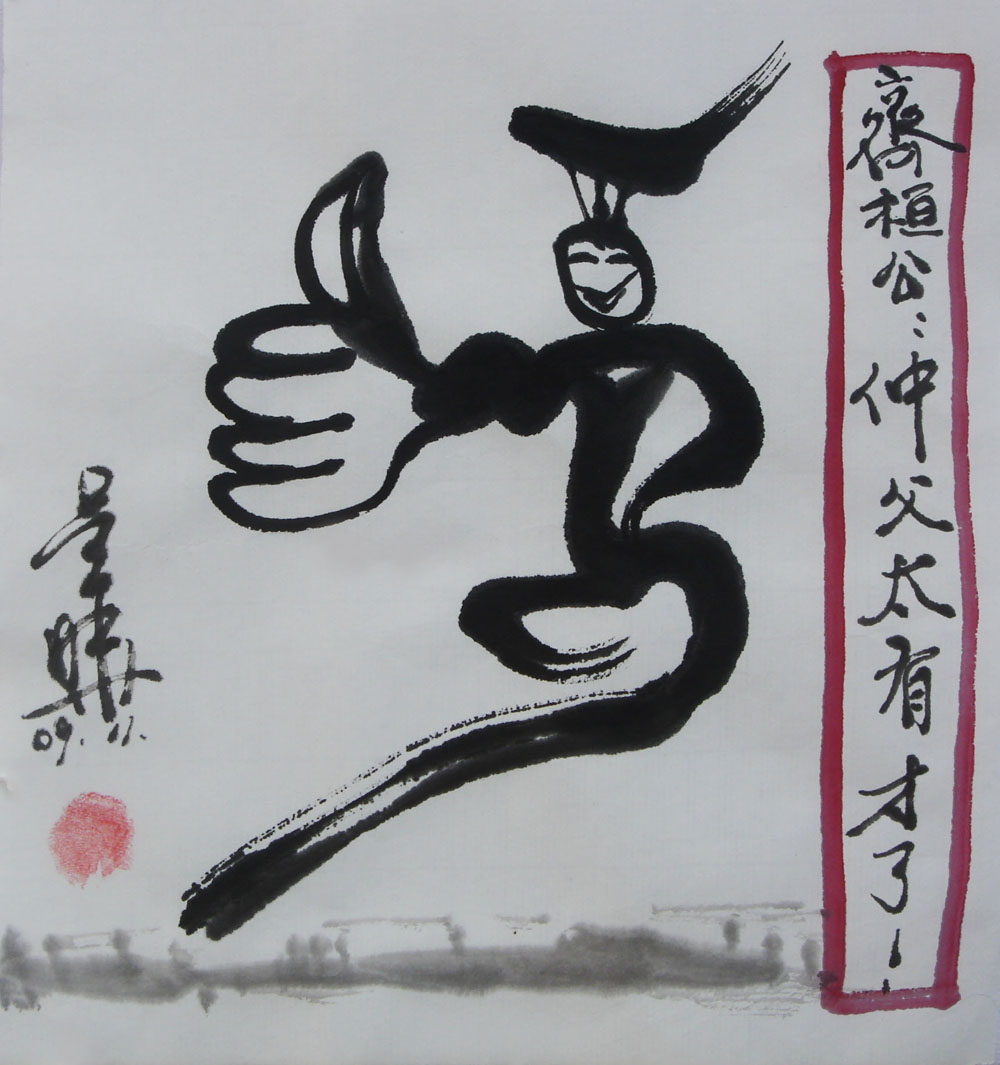 齊桓公：仲父太有才了！
09.11.